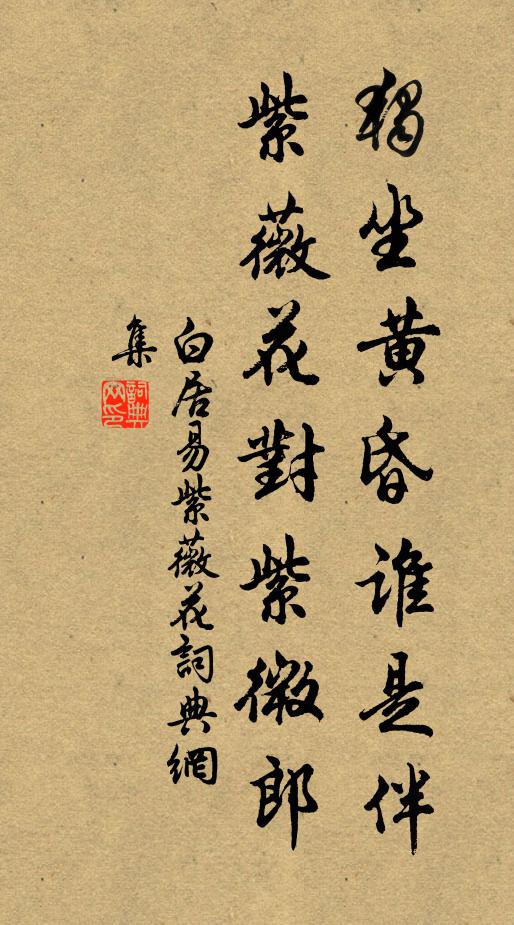 獨坐黃昏誰是伴
紫薇花對紫微郎
白居易紫薇花詞典網
集
詞典網印